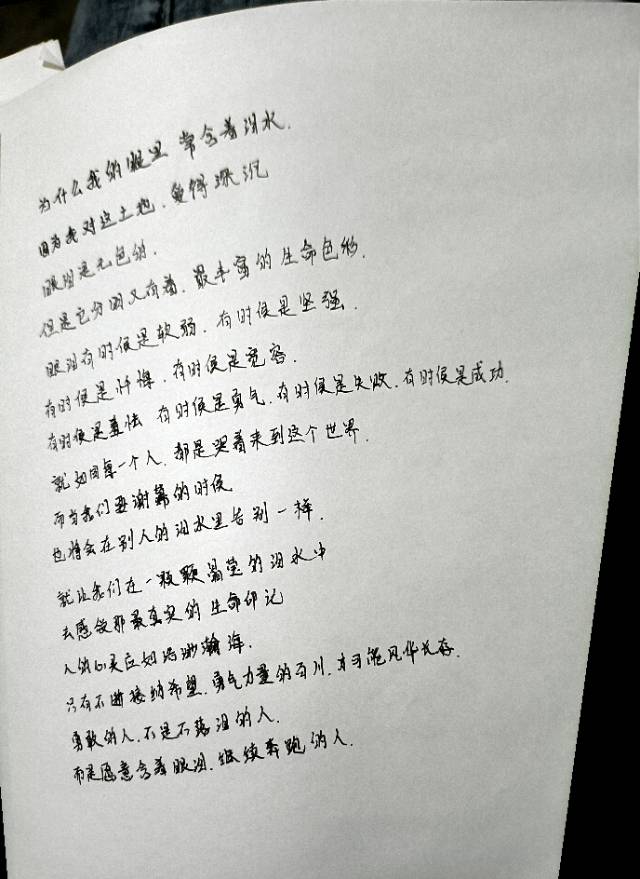 为什么我的眼里 常含着泪水.
因为我对这土地.爱得深沉
眼泪是无色的.
但是它分明又有着.最丰富的生命色彩.
眼泪有时候是软弱.有时候是坚强.
有时候是忏悔.有时候是宽容.
有时候是 有时候是勇气.有时候是失败.有时候是成功.
就如同每一个人.都是哭着来到这个世界.
而当我们要谢幕的时候
也将会在别人的泪水里告别一样.
就让我们在一颗颗晶莹的泪水中
去感受那最真实的生命印记
人的心灵应如浩渺瀚海.
只有不断接纳希望.勇气力量的百川.才可能风华长存.
勇敢的人.不是不落泪的人.
而是愿意含着眼泪.继续奔跑的人.